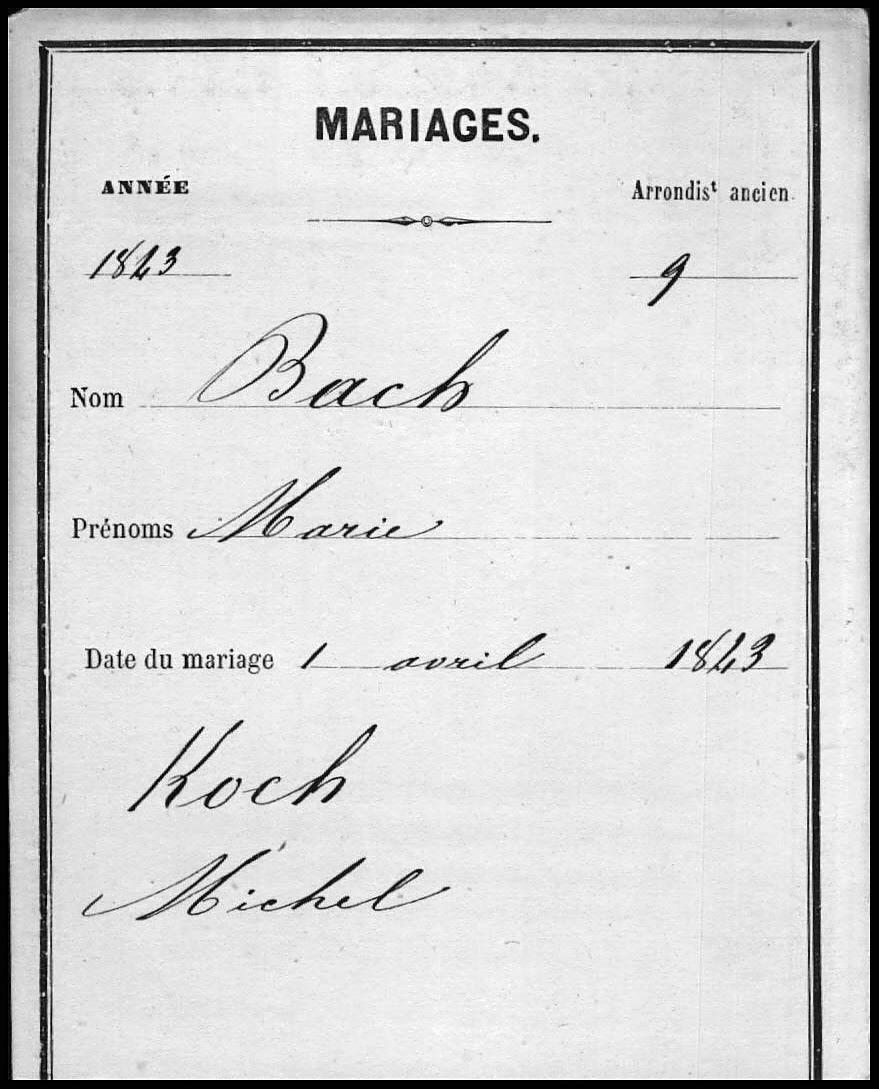 MARIAGES.
ANNÉE Arrondist ancien
1843 9
Nom Bach
Prénoms Marie
Date du mariage 1 avril 1843
Koch
Michel